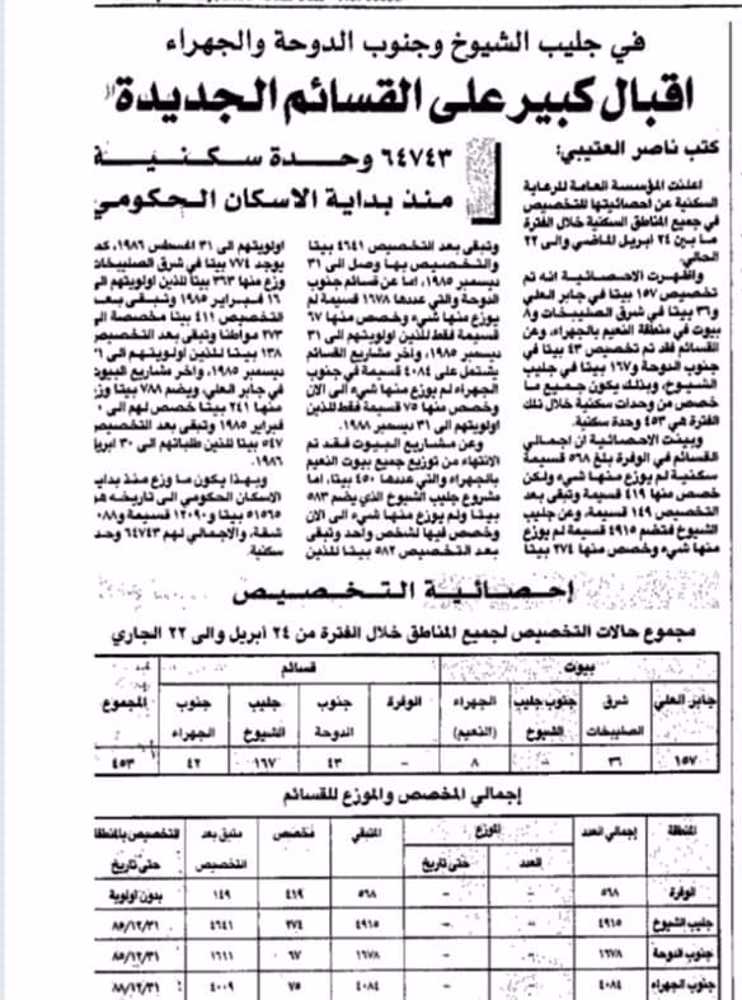 في جليب الشيوخ وجنوب الدوحة والجهراء
اقبال كبير على القسائم الجديدة
كتب ناصر العتيبي:
٦٤٧٤٣ وحدة سكنية
منذ بداية الاسكان الحكومي
اعلنت المؤسسة العامة للرعاية
السكنية عن احصائيتها للتخصيص
في جميع المناطق السكنية خلال الفترة
ما بين ٢٤ ابريل الماضي والى ٢٢
الحالي.
واظهرت الاحصائية انه تم
تخصيص ١٥٧ بيتا في جابر العلي
و٣٦ بيتا في شرق الصليبخات و٨
بيوت في منطقة النعيم بالجهراء، وعن
القسائم فقد تم تخصيص ٤٣ بيتا في
جنوب الدوحة و١٦٧ بيتا في جليب
الشيوخ، وبذلك يكون جميع ما
خصص من وحدات سكنية خلال تلك
الفترة هي ٤٥٣ وحدة سكنية.
وبينت الاحصائية ان اجمالي
القسائم في الوفرة بلغ ٥٦٨ قسيمة
سكنية لم يوزع منها شيء ولكن
خصص منها ٤١٩ قسيمة وتبقى بعد
التخصيص ١٤٩ قسيمة، وعن جليب
الشيوخ فتضم ٤٩١٥ قسيمة لم يوزع
منها شيء وخصص منها ٢٧٤ بيتا
وتبقى بعد التخصيص ٤٦٤١ بيتا
والتخصيص بها وصل الى ٣١
ديسمبر ١٩٨٥، اما عن قسائم جنوب
الدوحة والتي عددها ١٦٧٨ قسيمة لم
يوزع منها شيء وخصص منها ٦٧
قسيمة فقط للذين اولويتهم الى ٣١
ديسمبر ١٩٨٥، وآخر مشاريع القسائم
يشتمل على ٤٠٨٤ قسيمة في جنوب
الجهراء لم يوزع منها شيء الى الآن
وخصص منها ٧٥ قسيمة فقط للذين
اولويتهم الى ٣١ ديسمبر ١٩٨٨.
وعن مشاريع البيوت فقد تم
الانتهاء من توزيع جميع بيوت النعيم
بالجهراء والتي عددها ٤٥٠ بيتا، اما
مشروع جليب الشيوخ الذي يضم ٥٨٣
بيتا ولم يوزع منها شيء الى الآن
وخصص فيها لشخص واحد وتبقى
بعد التخصيص ٥٨٢ بيتا للذين
اولويتهم الى ٣١ اغسطس ١٩٨٦،
يوجد ٧٧٤ بيتا في شرق الصليبخات
وزع منها ٣٦٣ بيتا للذين اولويتهم
١٦ فبراير ١٩٨٥ وتبقى بعد
التخصيص ٤١١ بيتا مخصصة
٢٧٣ مواطنا وتبقى بعد التخصيص
١٣٨ بيتا للذين اولويتهم الى
ديسمبر ١٩٨٥، وآخر مشاريع البيوت
في جابر العلي، ويضم ٧٨٨ بيتا
منها ٢٤١ بيتا خصص لهم الى
فبراير ١٩٨٥ وتبقى بعد التخصيص
٥٤٧ بيتا للذين طلباتهم الى ٣٠
١٩٨٦.
وبهذا يكون ما وزع منذ
الاسكان الحكومي الى تاريخه
٥١٥٦٥ بيتا و١٢٠٩٠ قسيمة
شقة، والاجمالي لهم ٦٤٧٤٣
سكنية.
إحصائية التخصيص
مجموع حالات التخصيص لجميع المناطق خلال الفترة من ٢٤ أبريل والى ٢٢ الجاري
بيوت قسائم
جابر العلي شرق الصليبخات جنوب جليب الشيوخ الجهراء (النعيم) الوفرة جنوب الدوحة جليب الشيوخ جنوب الجهراء المجموع
١٥٧ ٣٦ – ٨ – ٤٣ ١٦٧ ٤٢ ٤٥٣
إجمالي المخصص والموزع للقسائم
المنطقة إجمالي العدد الموزع المتبقي مخصص متبق بعد التخصيص التخصيص بالمنطقة حتى تاريخ
العدد حتى تاريخ
الوفرة ٥٦٨ – – ٥٦٨ ٤١٩ ١٤٩ بدون اولوية
جليب الشيوخ ٤٩١٥ – – ٤٩١٥ ٢٧٤ ٤٦٤١ ٨٥/١٢/٣١
جنوب الدوحة ١٦٧٨ – – ١٦٧٨ ٦٧ ١٦١١ ٨٥/١٢/٣١
جنوب الجهراء ٤٠٨٤ – – ٤٠٨٤ ٧٥ ٤٠٠٩ ٨٨/١٢/٣١